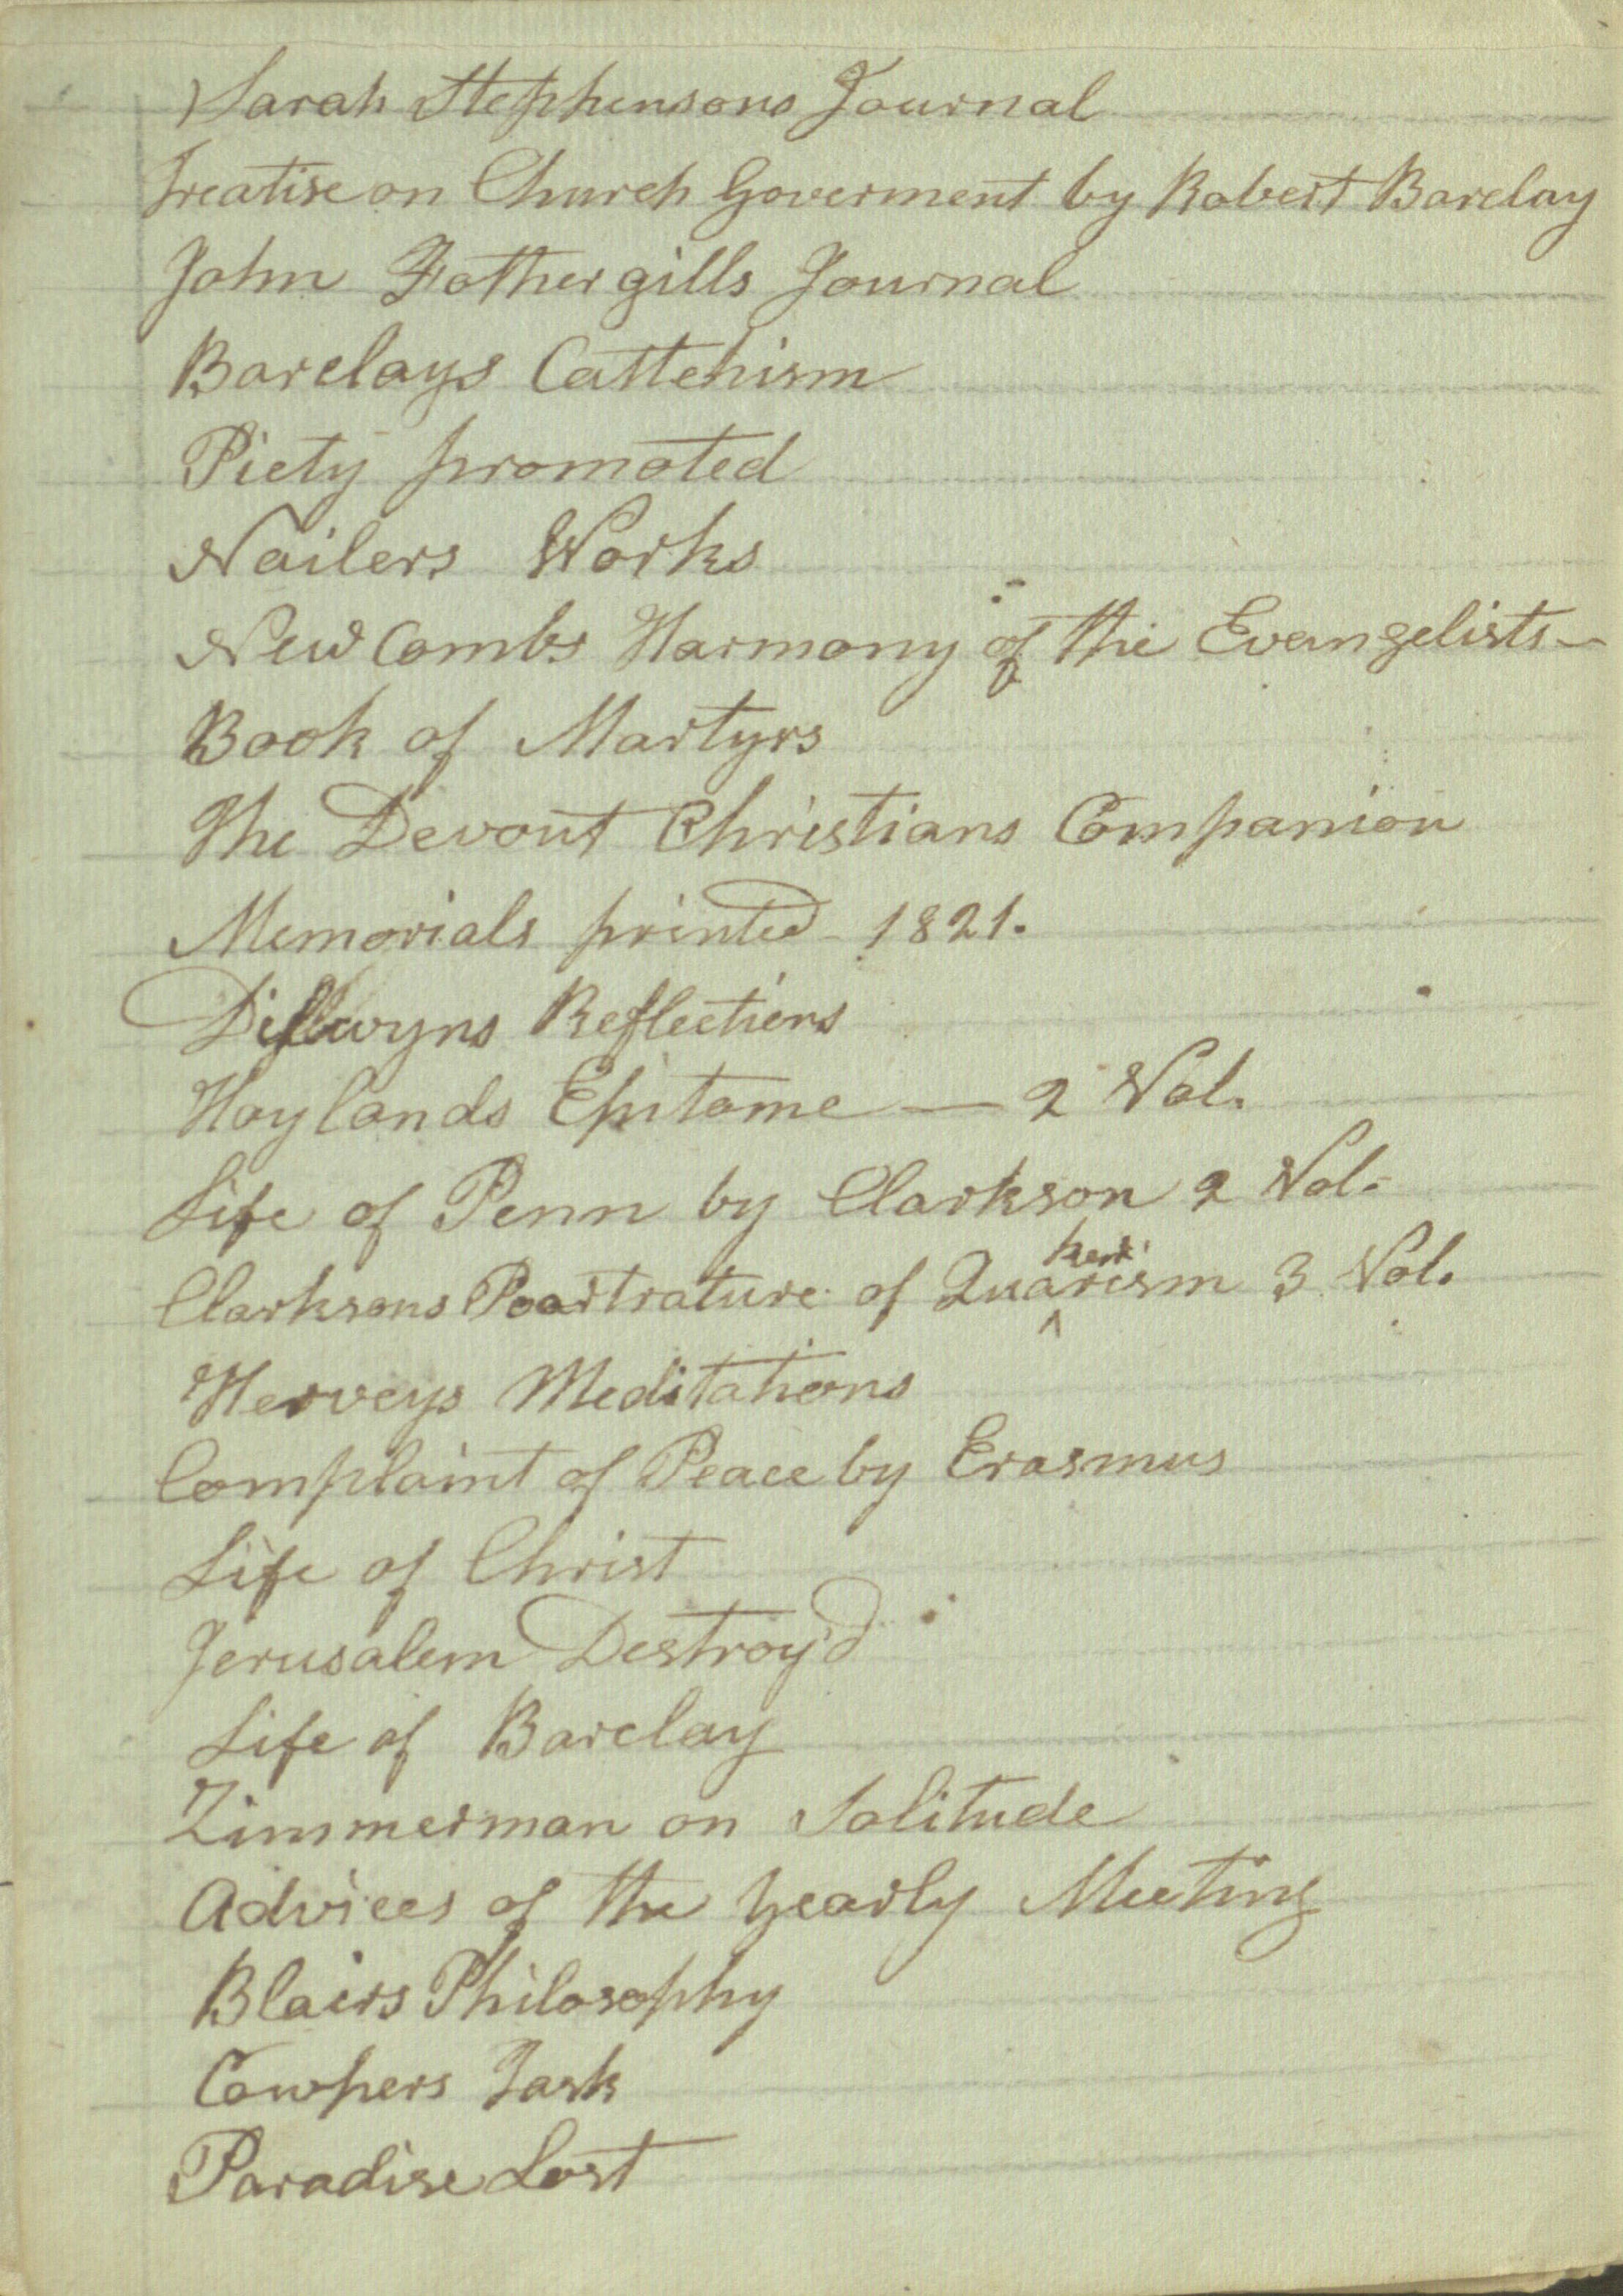 Sarah Stephensons Journal
Treatise on Church Goverment by Robert Barclay
John Fothergills Journal
Barclays Cattehism
Piety promoted
Nailers Works
New Combs Harmony of the Evangelists
Book of Martyrs
The Devout Christians Companion
Memorials printed 1821.
Dillwyns Reflections
Hoylands Epitome — 2 Vol.
Life of Penn by Clarkson 2 Vol.
Clarksons Poartrature of Quakerism 3 Vol.
Herveys Meditations
Complaint of Peace by Erasmus
Life of Christ
Jerusalem Destroy'd
Life of Barclay
Zimmerman on Solitude
Advices of the Yearly Meeting
Blairs Philosophy
Cowpers Task
Paradise Lost